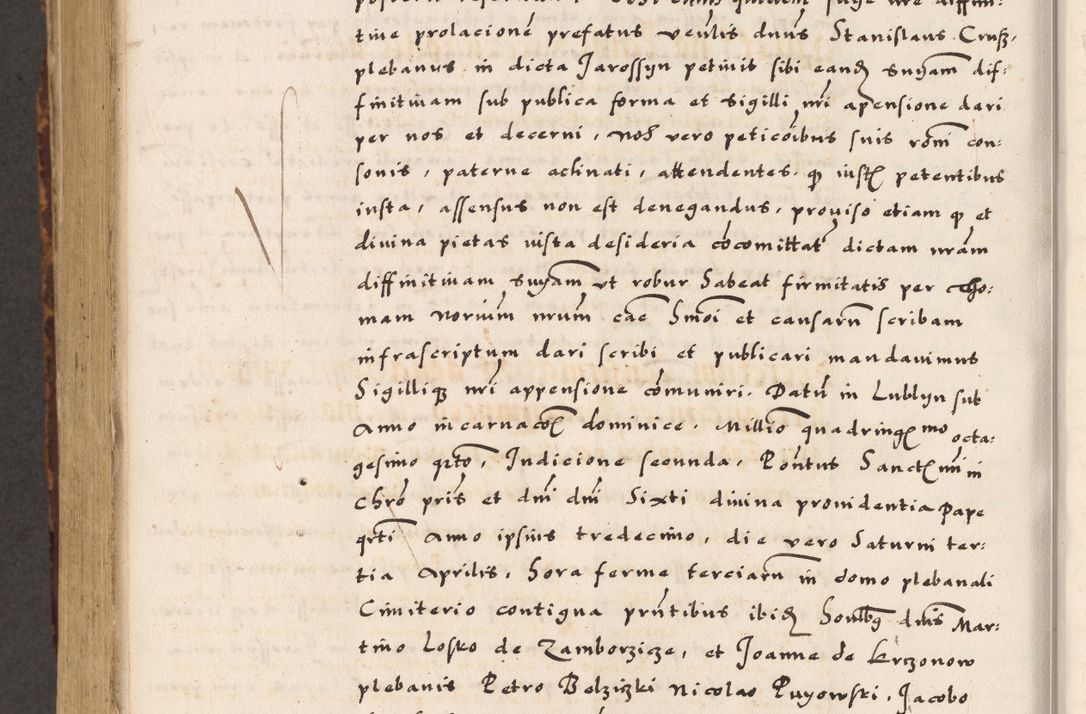 tiue prolacione prefatus venlis dnus Stanislaus Crusz,
plebanus in dicta Jarossyn petiuit sibi eand suyam dif:
finitiuam sub publica forma et sigilli nri apensione dari
per nos et decerni, nos vero peticoibus suis roni con:
sonis, paterne aclinati, attendentes. qp iuste petentibus
iusta, assensus non est denegandus, prouiso etiam qp et
diuina pietas iusta desideria cocomittat dictam nram
diffinitiuam suyam vt robur habeat firmitatis per Tho:
mam norium nrum cae hmoi et causarum scribam
infrascriptum dari scribi et publicari mandauimus
Sigillique nri appensione comuniri. Datum in Lublyn sub
Anno incarnacois dominice. Millio quadringmo octa:
gesimo qrto, Indicione secunda, Pontus Sanctmi in
Chro pris et dni dni Sixti diuina prouidentia Pape
qrti Anno ipsius tredecimo, die vero Saturni ter:
tia Aprilis, hora ferme terciarum in domo plebanali
Cimiterio contigua pntibus ibid honlbq dnis Mar:
tino Losko de Zamborzicze, et Joanne de Krczonow
plebanis Petro Belziczki Nicolao Puyowski, Jacobo